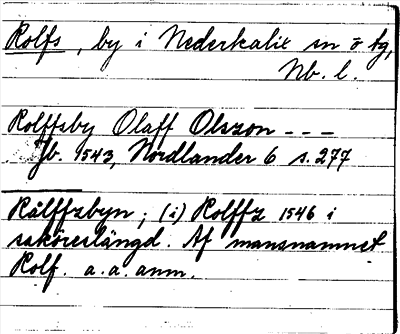 Rolfs, by i Nederkalix sn o tg,
Nb. l.
Rolffzby Olaff Olszon - - -
Jb. 1543, Nordlander 6 s. 277
Rålffzbyn; (i) Rolffz 1546 i
saköreslängd. Af mansnamnet
Rolf. a.a. anm.